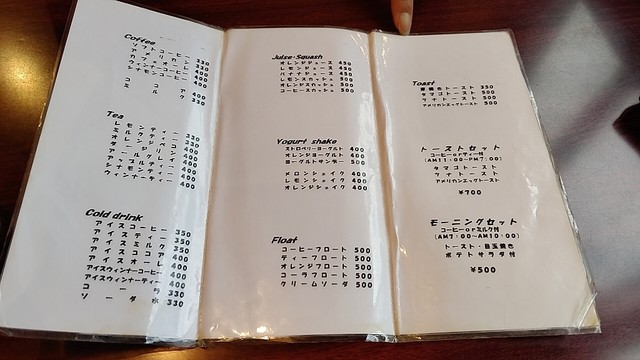 Coffee
ソフトコーヒー 330
アメリカン 330
カフェオーレ 400
ウィンナーコーヒー 400
シナモンコーヒー 400
ココア 400
ミルク 330
Tea
レモンティー 330
ミルクティー 330
アイスコーヒー 350
アイスティー 350
アイスミルク 350
アイスココア 400
アイスオーレ 400
アイスウィンナーコーヒー 400
アイスウィンナーティー 400
コーラ 330
ソーダ水 330
Cold drink
Juise·Squash
オレンジジュース 450
レモンジュース 450
バナナジュース 500
レモンスカッシュ 500
オレンジスカッシュ 500
コーヒースカッシュ 500
Yogurt shake
ストロベリーヨーグルト 400
オレンジヨーグルト 400
ヨーグルトサンデー 500
メロンシェイク 400
レモンシェイク 400
オレンジシェイク 400
Float
コーヒーフロート 500
ティーフロート 500
オレンジフロート 500
コーラフロート 500
クリームソーダ 500
Toast
トースト 350
タマゴトースト 500
ツナトースト 500
アメリカンエッグトースト 500
トーストセット
コーヒーorティー付
(AM11:00~PM7:00)
タマゴトースト
ツナトースト
アメリカンエッグトースト
¥700
モーニングセット
コーヒーorミルク付
(AM7:00~AM10:00)
トースト・目玉焼き
ポテトサラダ付
¥500